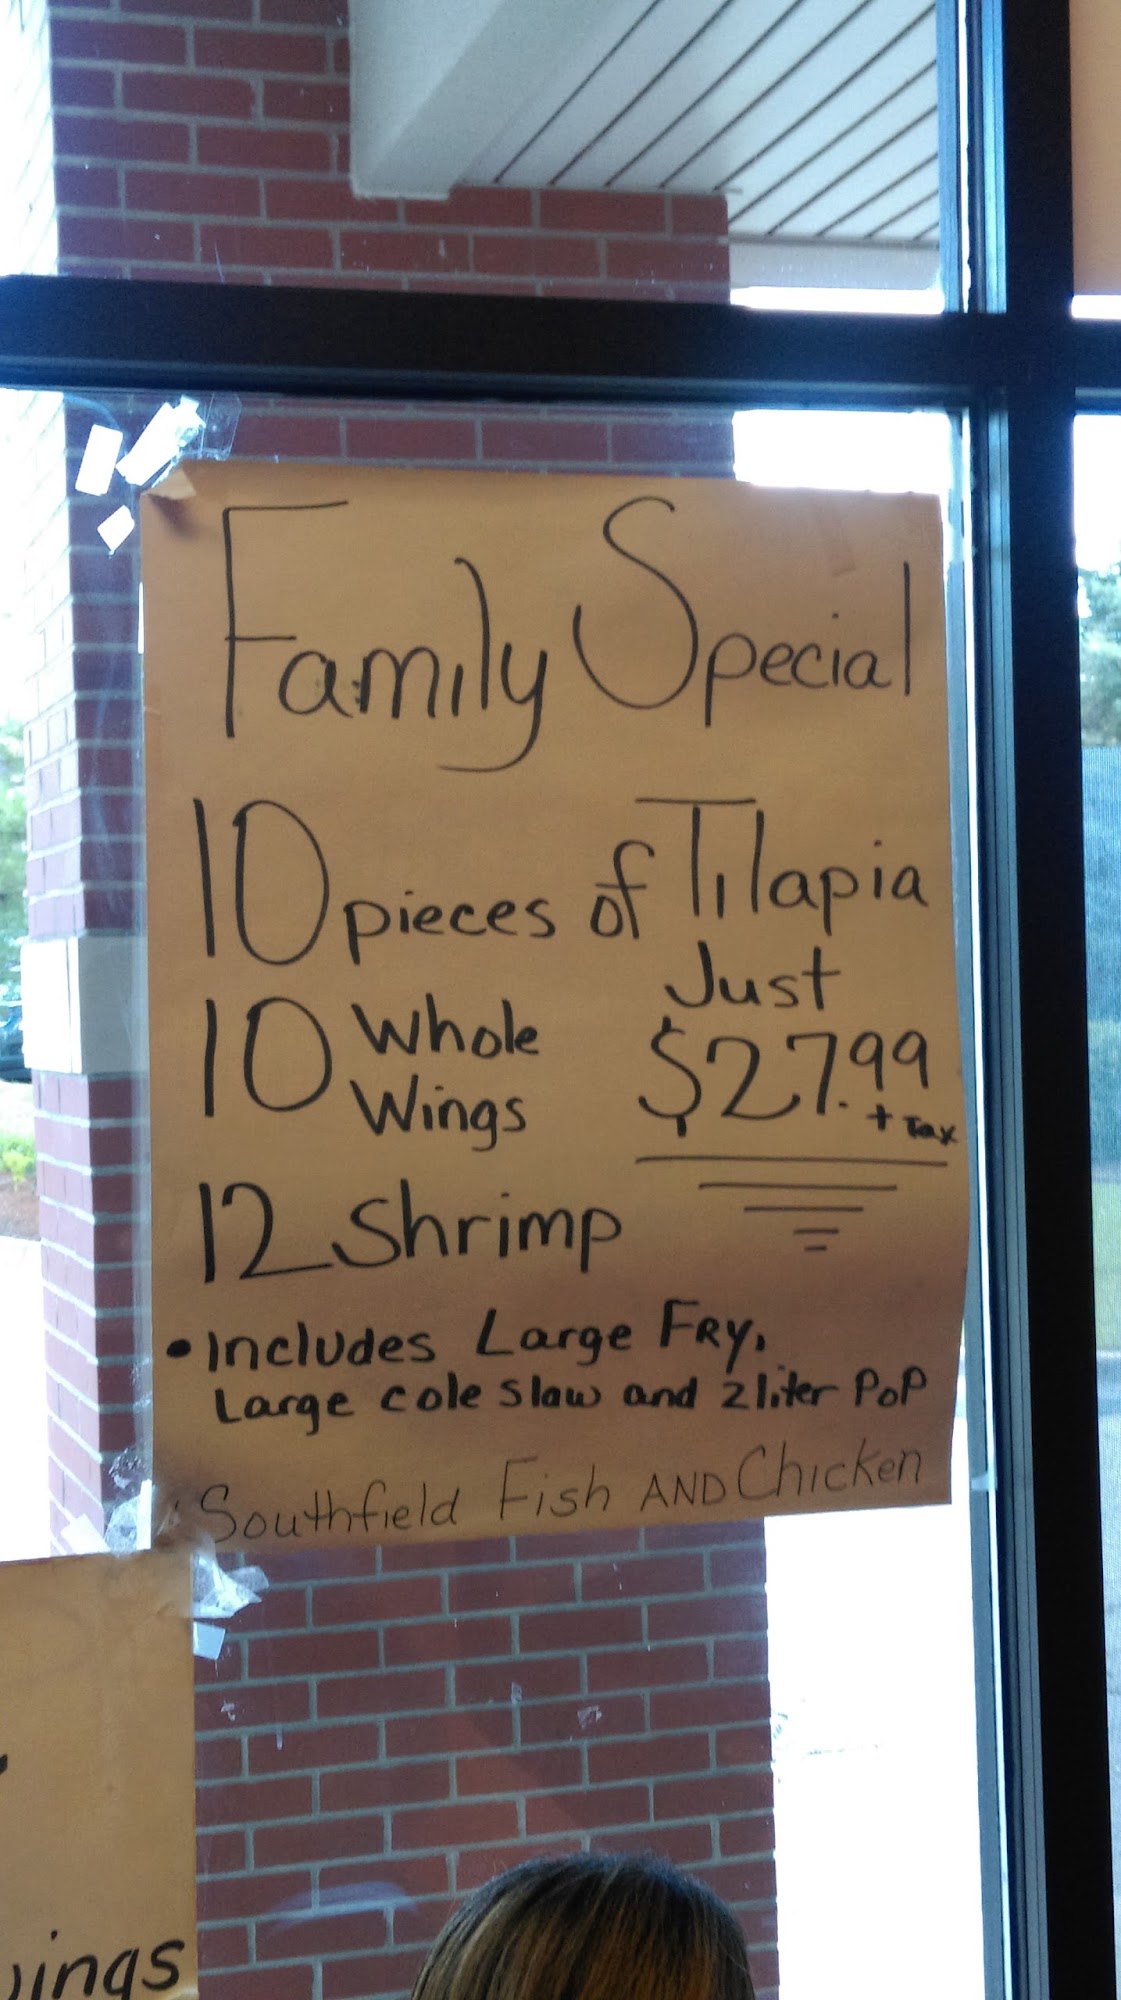 Family Special
10 pieces of Tilapia
10 Whole
Wings
Just
$27.99
+ Tax
12 Shrimp
• Includes Large FRY,
Large cole slaw and 2 liter PoP
Southfield Fish AND Chicken